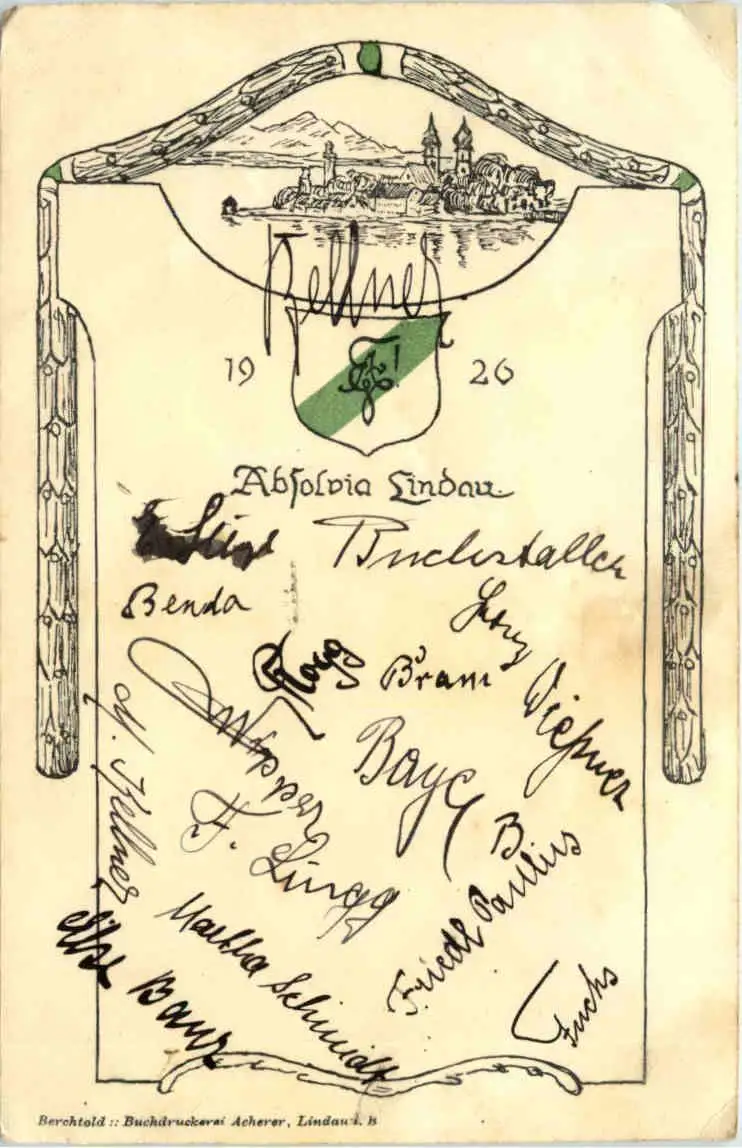 Kellner
19 26
Absolvia Lindau
Buchstaller
Benda
Bram
Wipper
Baye
M. Kellner
F. Lingg
B
Friedl Paulus
Martha Schmidt
Ilse Banz
Fuchs
Berchtold :: Buchdruckerei Acherer, Lindau i. B